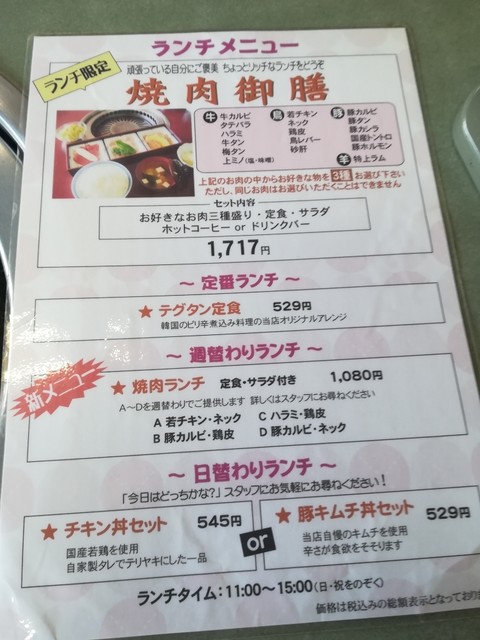 ランチメニュー
ランチ限定
頑張っている自分にご褒美 ちょっとリッチなランチをどうぞ
焼肉御膳
牛 牛カルビ
タテバラ
ハラミ
牛タン
梅タン
上ミノ(塩・味噌)
鳥 若チキン
ネック
鶏皮
鳥レバー
砂肝
豚 豚カルビ
豚タン
豚カシラ
国産トントロ
豚ホルモン
羊 特上ラム
上記のお肉の中からお好きな物を3種お選び下さい
ただし、同じお肉はお選びいただくことはできません
セット内容
お好きなお肉三種盛り・定食・サラダ
ホットコーヒー or ドリンクバー
1,717円
～ 定番ランチ ～
★ テグタン定食 529円
韓国のピリ辛煮込み料理の当店オリジナルアレンジ
～ 週替わりランチ ～
新メニュー
★ 焼肉ランチ 定食・サラダ付き 1,080円
A～Dを週替わりでご提供します 詳しくはスタッフにお尋ねください
A 若チキン・ネック C ハラミ・鶏皮
B 豚カルビ・鶏皮 D 豚カルビ・ネック
～ 日替わりランチ ～
「今日はどっちかな？」スタッフにお気軽にお尋ねください！
★ チキン丼セット 545円
国産若鶏を使用
自家製タレでテリヤキにした一品
or
★ 豚キムチ丼セット 529円
当店自慢のキムチを使用
辛さが食欲をそそります
ランチタイム：11:00～15:00(日・祝をのぞく)
価格は税込みの総額表示となっており